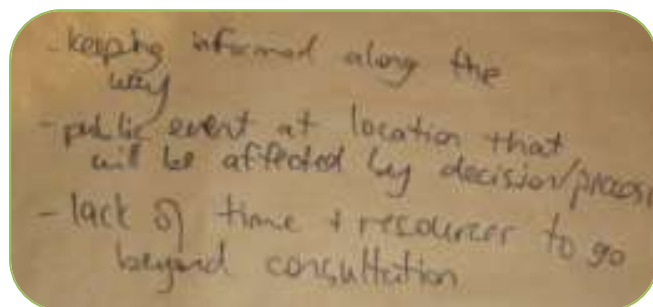 - keeping informed along the
way
- public event at location that
will be affected by decision/process
- lack of time + resources to go
beyond consultation